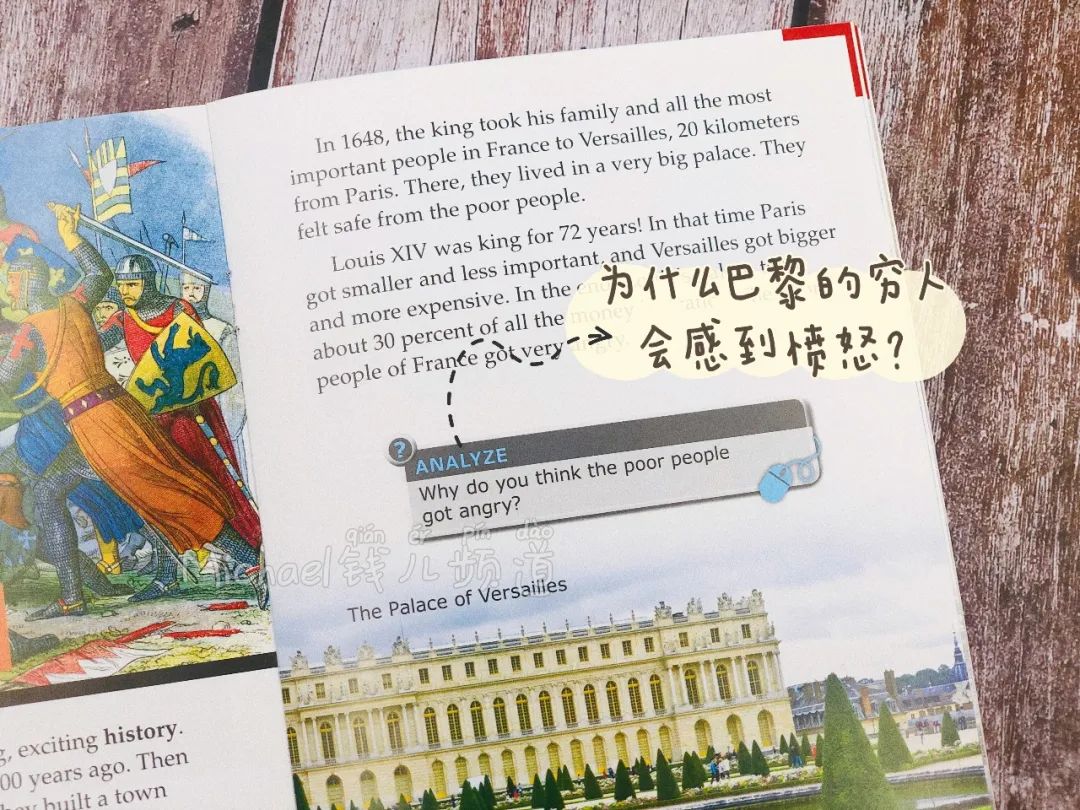 In 1648, the king took his family and all the most
important people in France to Versailles, 20 kilometers
from Paris. There, they lived in a very big palace. They
felt safe from the poor people.
Louis XIV was king for 72 years! In that time Paris
got smaller and less important, and Versailles got bigger
and more expensive. In the
about 30 percent of all the money
people of France got very
为什么巴黎的穷人
会感到愤怒?
? ANALYZE
Why do you think the poor people
got angry?
qián ér pín dào
Michael钱儿频道
The Palace of Versailles
exciting history.
00 years ago. Then
built a town